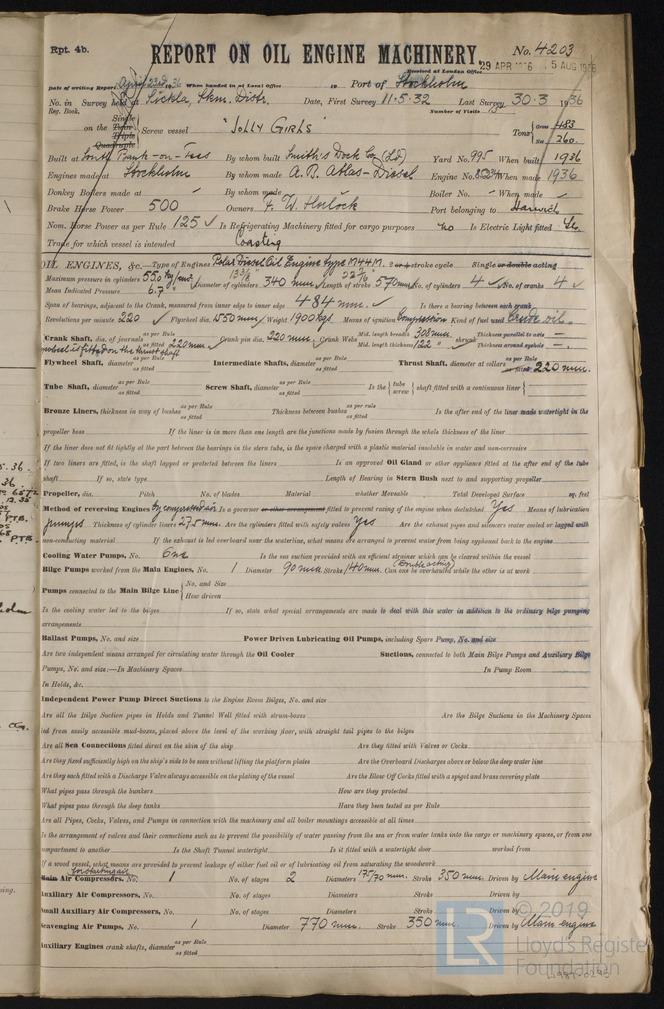 Rpt. 4b.
REPORT ON OIL ENGINE MACHINERY.
No. 4203
Received at London Office
29 APR 1936
5 AUG 1936
Date of writing Report April 23rd 1936 When handed in at Local Office 19 Port of Stockholm
No. in Survey held at Sickla, Skm. Distr. Date, First Survey 11.5.32 Last Survey 30.3 1936
Reg. Book. Number of Visits
on the Single Twin Triple Quadruple Screw vessel "JOLLY GIRLS" Tons Gross 483 Net 260.
Built at South Bank-on-Tees By whom built Smith's Dock Coy (Ld) Yard No. 995 When built 1936
Engines made at Stockholm By whom made A.B. Atlas-Diesel Engine No. When made 1936
Donkey Boilers made at By whom made Boiler No. When made
Brake Horse Power 500 Owners F. W. Horlock Port belonging to Harwich
Nom. Horse Power as per Rule 125 Is Refrigerating Machinery fitted for cargo purposes no Is Electric Light fitted
Trade for which vessel is intended Coasting
OIL ENGINES, &c. Type of Engines Polar Diesel Oil Engine type M44M. 2 or 4 stroke cycle Single or double acting
Maximum pressure in cylinders 55.0 kg/cm² Diameter of cylinders 340 mm. Length of stroke 570 mm. No. of cylinders 4 No. of cranks 4
Mean Indicated Pressure 6.7
Span of bearings, adjacent to the Crank, measured from inner edge to inner edge 484 mm. Is there a bearing between each crank
Revolutions per minute 220 Flywheel dia. 1550 mm Weight 1900 kgs Means of ignition Compression Kind of fuel used Crude oil.
Crank Shaft, dia. of journals as per Rule as fitted 220 mm. Crank pin dia. 220 mm. Crank Webs Mid. length breadth 308 mm. Mid. length thickness 122 " shrunk Thickness parallel to axis - Thickness around eyehole -
wheel is fitted on the thrust shaft
Flywheel Shaft, diameter as per Rule as fitted Intermediate Shafts, diameter as per Rule as fitted Thrust Shaft, diameter at collars as per Rule as fitted 220 mm.
Tube Shaft, diameter as per Rule as fitted Screw Shaft, diameter as per Rule as fitted Is the tube screw shaft fitted with a continuous liner
Bronze Liners, thickness in way of bushes as per Rule as fitted Thickness between bushes as per rule as fitted Is the after end of the liner made watertight in the
propeller boss If the liner is in more than one length are the junctions made by fusion through the whole thickness of the liner
If the liner does not fit tightly at the part between the bearings in the stern tube, is the space charged with a plastic material insoluble in water and non-corrosive
If two liners are fitted, is the shaft lapped or protected between the liners Is an approved Oil Gland or other appliance fitted at the after end of the tube
shaft If so, state type Length of Bearing in Stern Bush next to and supporting propeller
Propeller, dia. Pitch No. of blades Material whether Moveable Total Developed Surface sq. feet
Method of reversing Engines by compressed air Is a governor or other arrangement fitted to prevent racing of the engine when declutched Yes Means of lubrication
pumps Thickness of cylinder liners 27.5 mm. Are the cylinders fitted with safety valves Yes Are the exhaust pipes and silencers water cooled or lagged with
non-conducting material If the exhaust is led overboard near the waterline, what means are arranged to prevent water from being syphoned back to the engine
Cooling Water Pumps, No. One Is the sea suction provided with an efficient strainer which can be cleared within the vessel
Bilge Pumps worked from the Main Engines, No. 1 Diameter 90 mm Stroke 140 mm. (Double acting) Can one be overhauled while the other is at work
Pumps connected to the Main Bilge Line No. and Size How driven
Is the cooling water led to the bilges If so, state what special arrangements are made to deal with this water in addition to the ordinary bilge pumping
arrangements
Ballast Pumps, No. and size Power Driven Lubricating Oil Pumps, including Spare Pump, No. and size
Are two independent means arranged for circulating water through the Oil Cooler Suctions, connected to both Main Bilge Pumps and Auxiliary Bilge
Pumps, No. and size:—In Machinery Spaces In Pump Room
In Holds, &c.
Independent Power Pump Direct Suctions to the Engine Room Bilges, No. and size
Are all the Bilge Suction pipes in Holds and Tunnel Well fitted with strum-boxes Are the Bilge Suctions in the Machinery Spaces
led from easily accessible mud-boxes, placed above the level of the working floor, with straight tail pipes to the bilges
Are all Sea Connections fitted direct on the skin of the ship Are they fitted with Valves or Cocks
Are they fixed sufficiently high on the ship's side to be seen without lifting the platform plates Are the Overboard Discharges above or below the deep water line
Are they each fitted with a Discharge Valve always accessible on the plating of the vessel Are the Blow Off Cocks fitted with a spigot and brass covering plate
What pipes pass through the bunkers How are they protected
What pipes pass through the deep tanks Have they been tested as per Rule
Are all Pipes, Cocks, Valves, and Pumps in connection with the machinery and all boiler mountings accessible at all times
Is the arrangement of valves and their connections such as to prevent the possibility of water passing from the sea or from water tanks into the cargo or machinery spaces, or from one
compartment to another Is the Shaft Tunnel watertight Is it fitted with a watertight door worked from
If a wood vessel, what means are provided to prevent leakage of either fuel oil or of lubricating oil from saturating the woodwork
Main Air Compressors, No. 1 No. of stages 2 Diameters 175/70 mm. Stroke 350 mm. Driven by Main engine
Auxiliary Air Compressors, No. No. of stages Diameters Stroke Driven by
Small Auxiliary Air Compressors, No. No. of stages Diameters Stroke Driven by
Scavenging Air Pumps, No. 1 Diameter 770 mm. Stroke 350 mm. Driven by Main engine
Auxiliary Engines crank shafts, diameter as per Rule as fitted
LR
© 2019
Lloyd's Register
Foundation